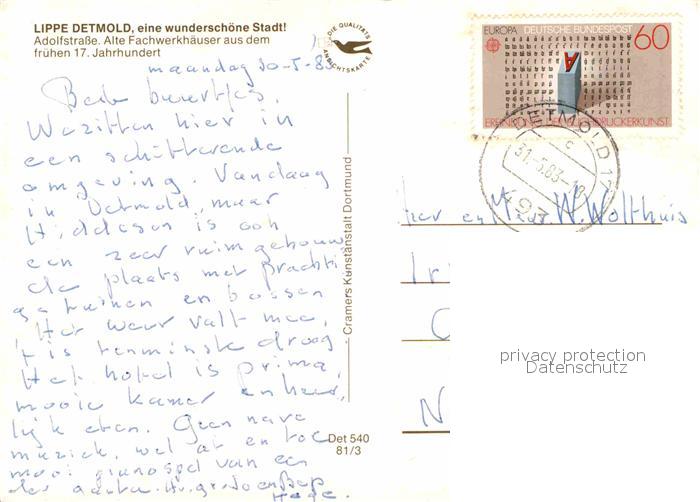 LIPPE DETMOLD, eine wunderschöne Stadt!
Adolfstraße. Alte Fachwerkhäuser aus dem
frühen 17. Jahrhundert
DIE QUALITÄTS
ANSICHTSKARTE
maandag 30-5-83
Beste buurtjes,
We zitten hier in
een schitterende
omgeving. Vandaag
in Detmold, maar
Hiddesen is ook
een zeer ruim gebouw
de plaats met prachti
ge tuinen en bossen
Het weer valt mee,
't is tenminste droog
Het hotel is prima,
mooie kamer en heer
lijk eten. Geen nare
muziek, wel af en toe
mooi pianospel van een
der gasten. Hr. groeten
Cramers Kunstanstalt Dortmund
Det 540
81/3
EUROPA DEUTSCHE BUNDESPOST 60
DETMOLD 1
c
31.5.83-18
493
Mevr. W. Wolthuis
privacy protection
Datenschutz